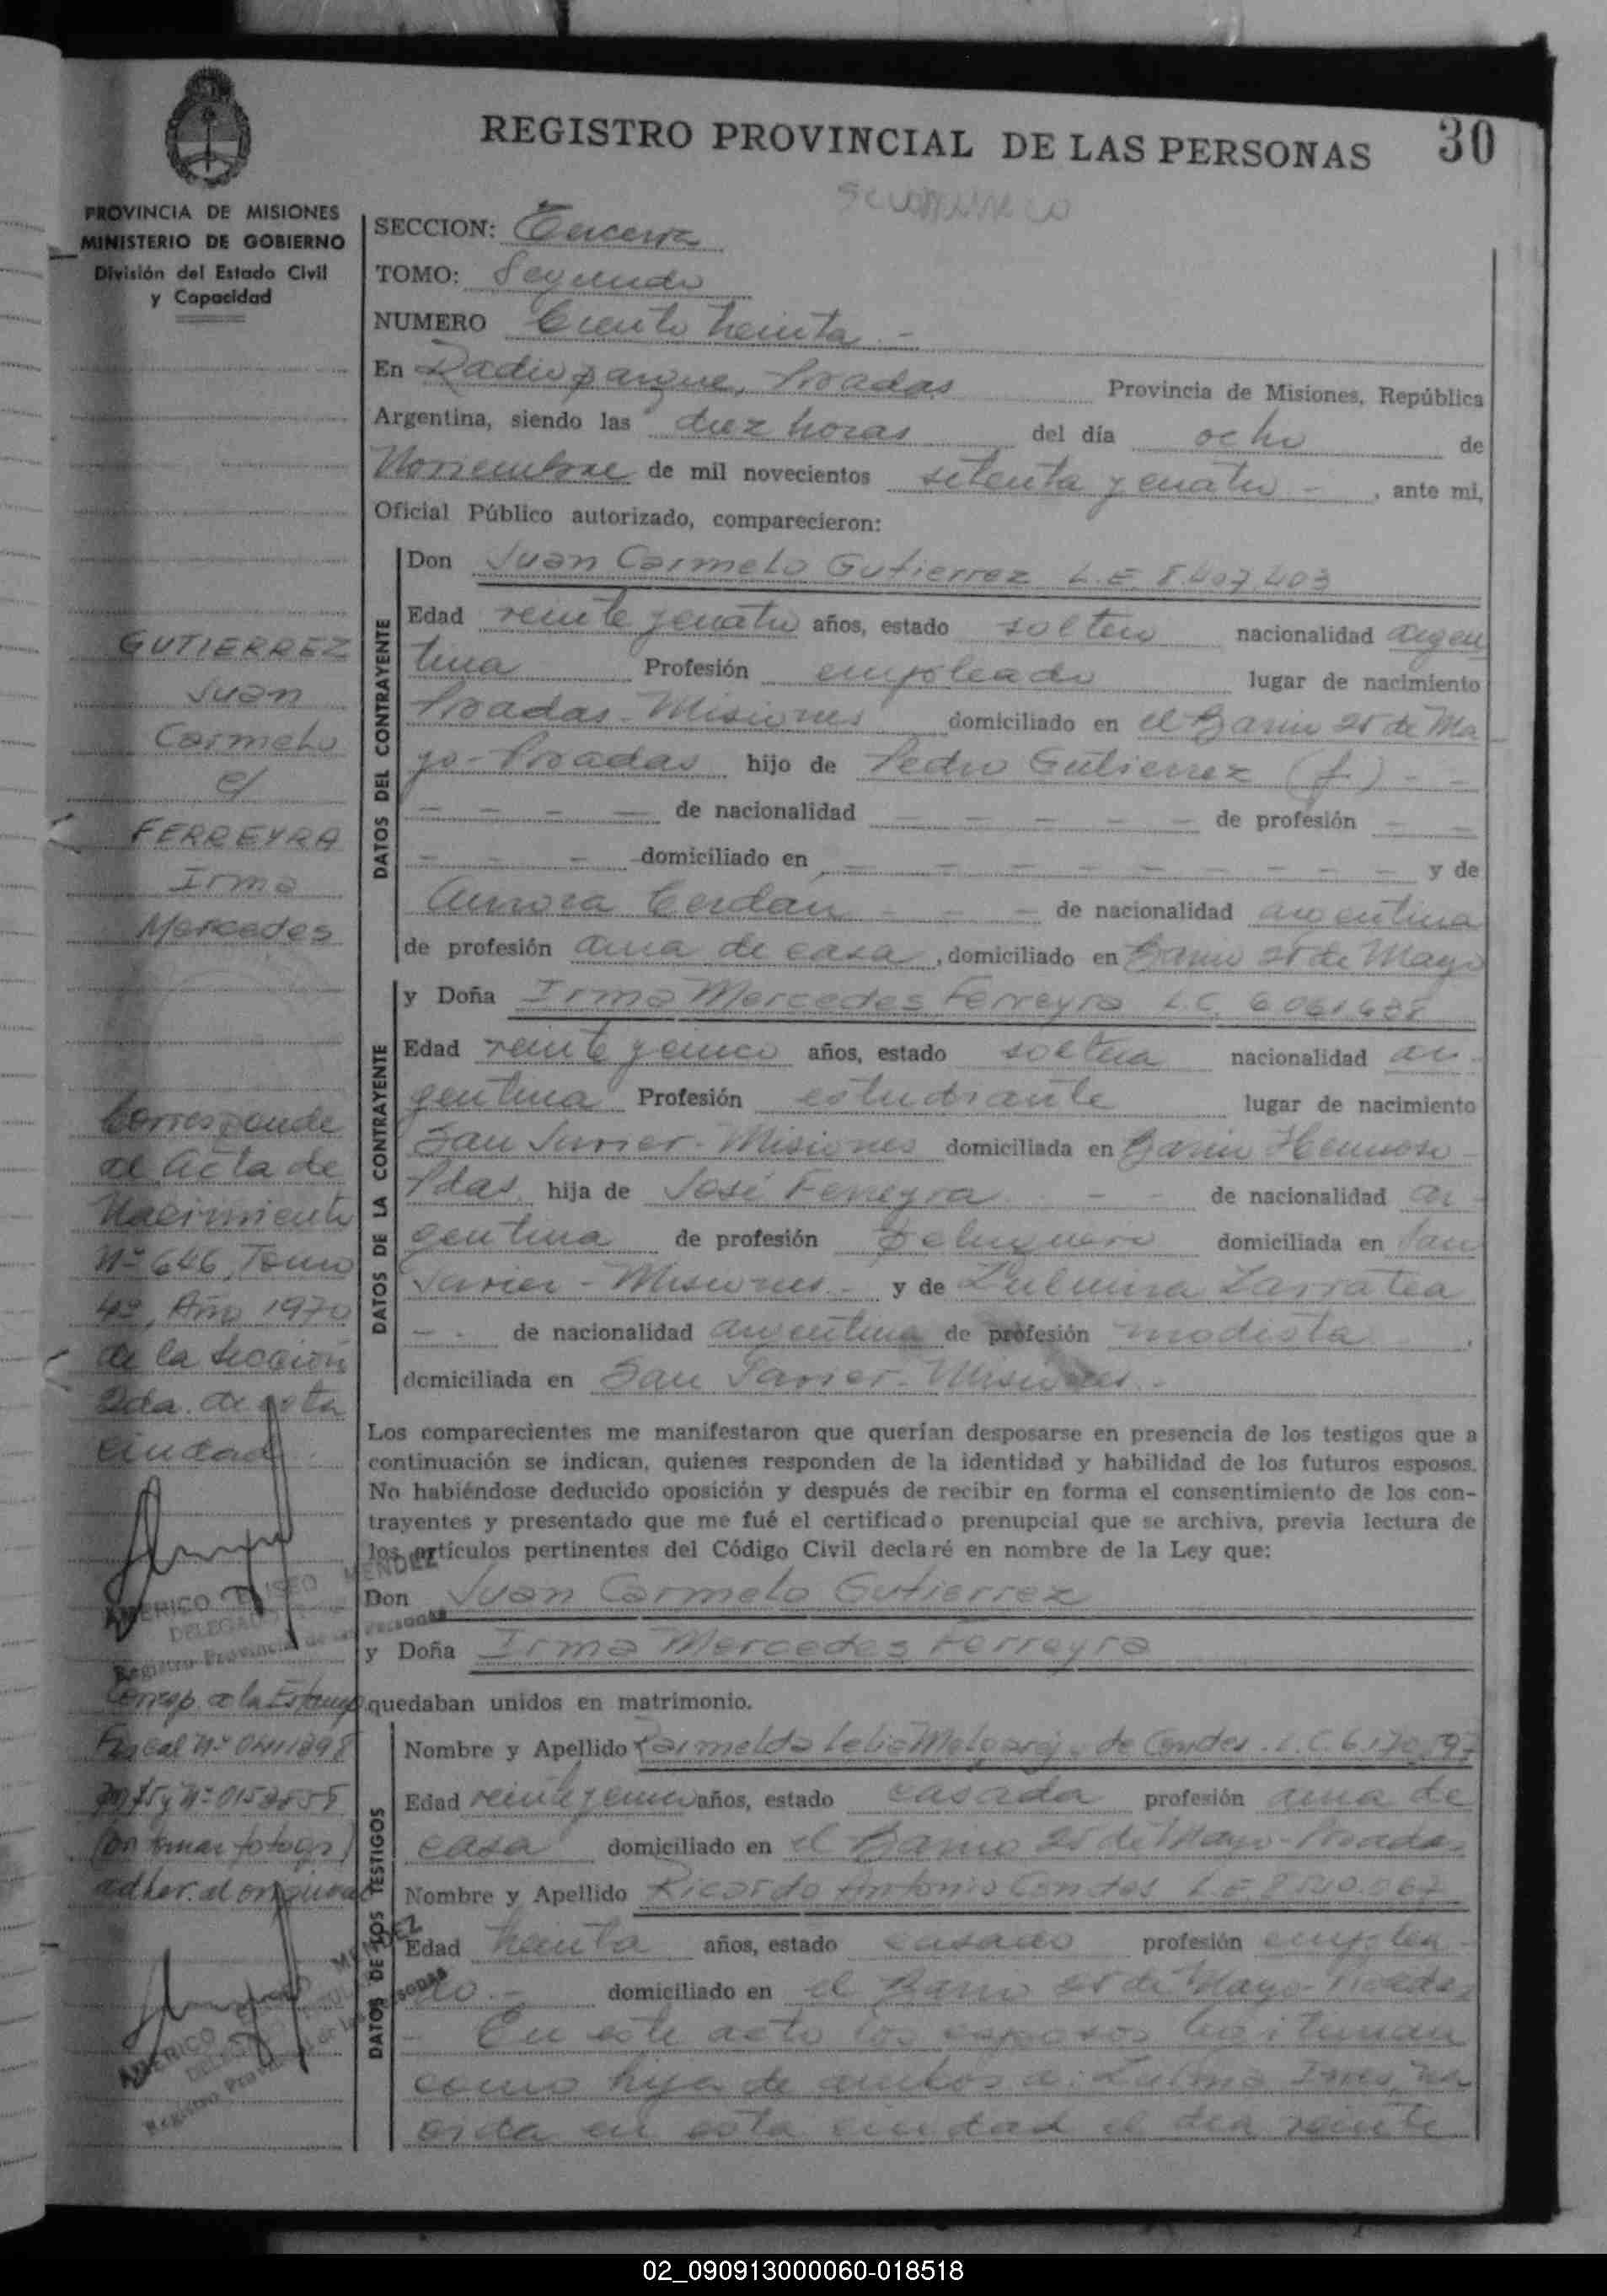 REGISTRO PROVINCIAL DE LAS PERSONAS 30
PROVINCIA DE MISIONES
MINISTERIO DE GOBIERNO
División del Estado Civil
y Capacidad
SECCION: Tercera
TOMO: Segundo
NUMERO Ciento treinta.-
En Radio parque, Posadas Provincia de Misiones, República
Argentina, siendo las diez horas del día ocho de
Noviembre de mil novecientos setenta y cuatro - , ante mi,
Oficial Público autorizado, comparecieron:
DATOS DEL CONTRAYENTE
Don Juan Carmelo Gutierrez L.E 8.407.403
Edad veinte y cuatro años, estado soltero nacionalidad argen
tina Profesión empleado lugar de nacimiento
Posadas - Misiones domiciliado en el Barrio 25 de Ma
yo - Posadas hijo de Pedro Gutierrez (f) - -
- - - - de nacionalidad - - - - - de profesión - -
- - - domiciliado en - - - - - - - - y de
Aurora Cerdan - - - de nacionalidad argentina
de profesión ama de casa, domiciliado en Barrio 25 de Mayo
DATOS DE LA CONTRAYENTE
y Doña Irma Mercedes Ferreyra L.C. 6.061.488
Edad veinte y cinco años, estado soltera nacionalidad ar-
gentina Profesión estudiante lugar de nacimiento
San Javier - Misiones domiciliada en Barrio Hermoso -
Pdas. hija de José Ferreyra - - de nacionalidad ar-
gentina de profesión Peluquero domiciliada en San
Javier - Misiones.- y de Zulmira Zarratea
- - de nacionalidad argentina de profesión modista
domiciliada en San Javier - Misiones.-
Los comparecientes me manifestaron que querían desposarse en presencia de los testigos que a
continuación se indican, quienes responden de la identidad y habilidad de los futuros esposos.
No habiéndose deducido oposición y después de recibir en forma el consentimiento de los con-
trayentes y presentado que me fué el certificado prenupcial que se archiva, previa lectura de
los artículos pertinentes del Código Civil declaré en nombre de la Ley que:
Don Juan Carmelo Gutierrez
y Doña Irma Mercedes Ferreyra
quedaban unidos en matrimonio.
DATOS DE LOS TESTIGOS
Nombre y Apellido de Condes L.C. 6.170.597
Edad veinte y cinco años, estado casada profesión ama de
casa domiciliado en el Barrio 25 de Mayo - Posadas
Nombre y Apellido Ricardo Antonio Condes L.E
Edad treinta años, estado casado profesión emplea
do.- domiciliado en el Barrio 25 de Mayo - Posadas
- En este acto los esposos legitiman
como hija de ambos a: Zulma Ines, na
cida en esta ciudad el día veinte
GUTIERREZ
Juan
Carmelo
c/
FERREYRA
Irma
Mercedes
Corresponde
al Acta de
Nacimiento
Nº 646, Tomo
4º, Año 1970
de la Sección
2da. de esta
ciudad.
AMERICO ELISEO MENDEZ
DELEGADO
Registro Provincial de las Personas
Corresp. a la Estamp.
Fiscal Nº
adher. al original
AMERICO ELISEO MENDEZ
Registro Provincial de las Personas
02_090913000060-018518